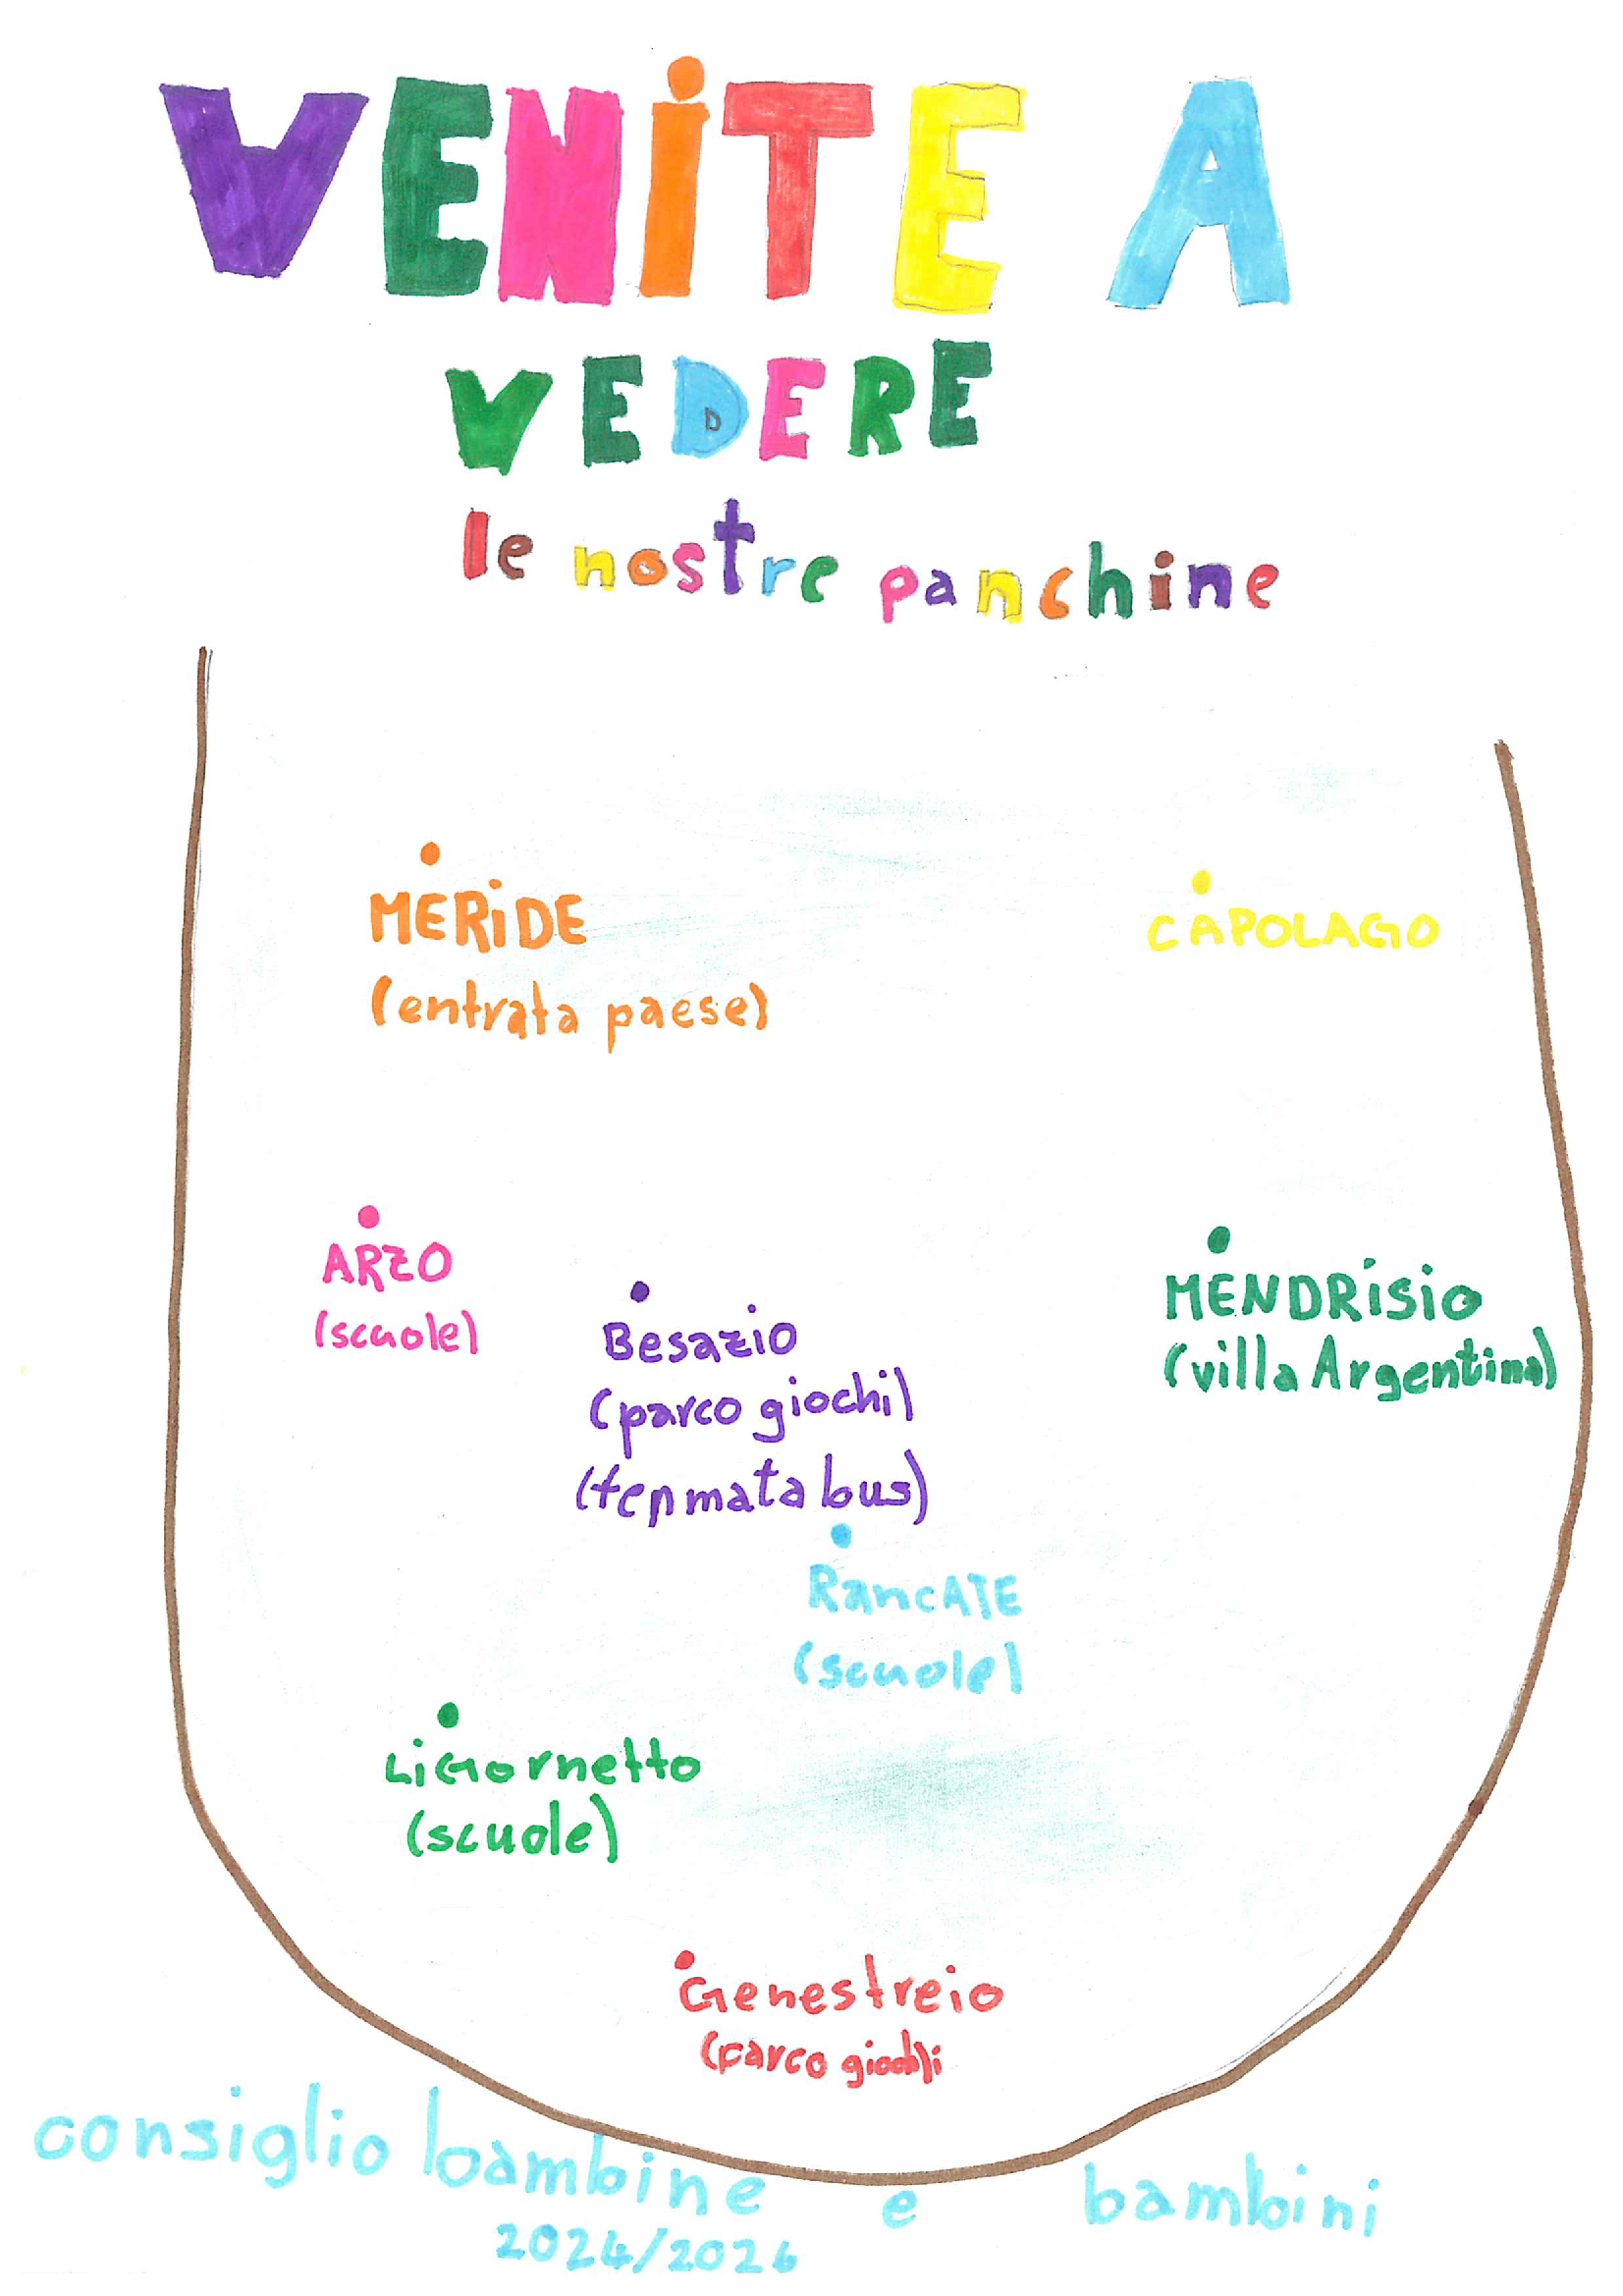 VENiTE A
VEDERE
le nostre panchine
MERiDE
(entrata paese)
CAPOLAGO
ARZO
(scuole)
Besazio
(parco giochi)
(fermata bus)
MENDRisio
(villa Argentina)
RancATE
(scuole)
LiGornetto
(scuole)
Genestreio
(parco giochi)
consiglio bambine e bambini
2024/2026